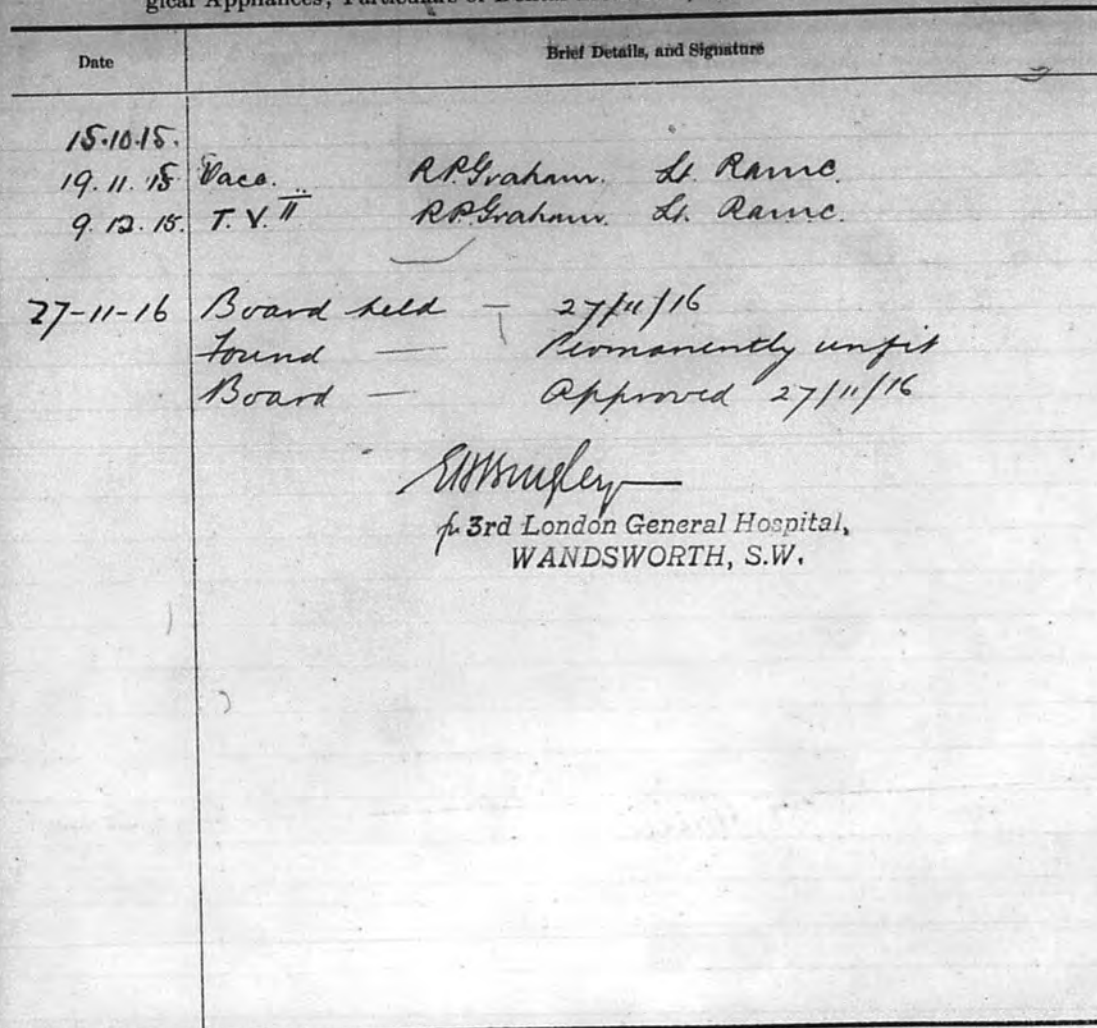 gical Appliances, Particulars of Dental
Date Brief Details, and Signature
15.10.15.
19.11.15 Vacc. R.P.Graham. Lt. Ramc.
9.12.15. T.V. II R.P.Graham. Lt. Ramc.
27-11-16 Board held — 27/11/16
Found — Permanently unfit
Board — Approved 27/11/16
p. 3rd London General Hospital,
WANDSWORTH, S.W.